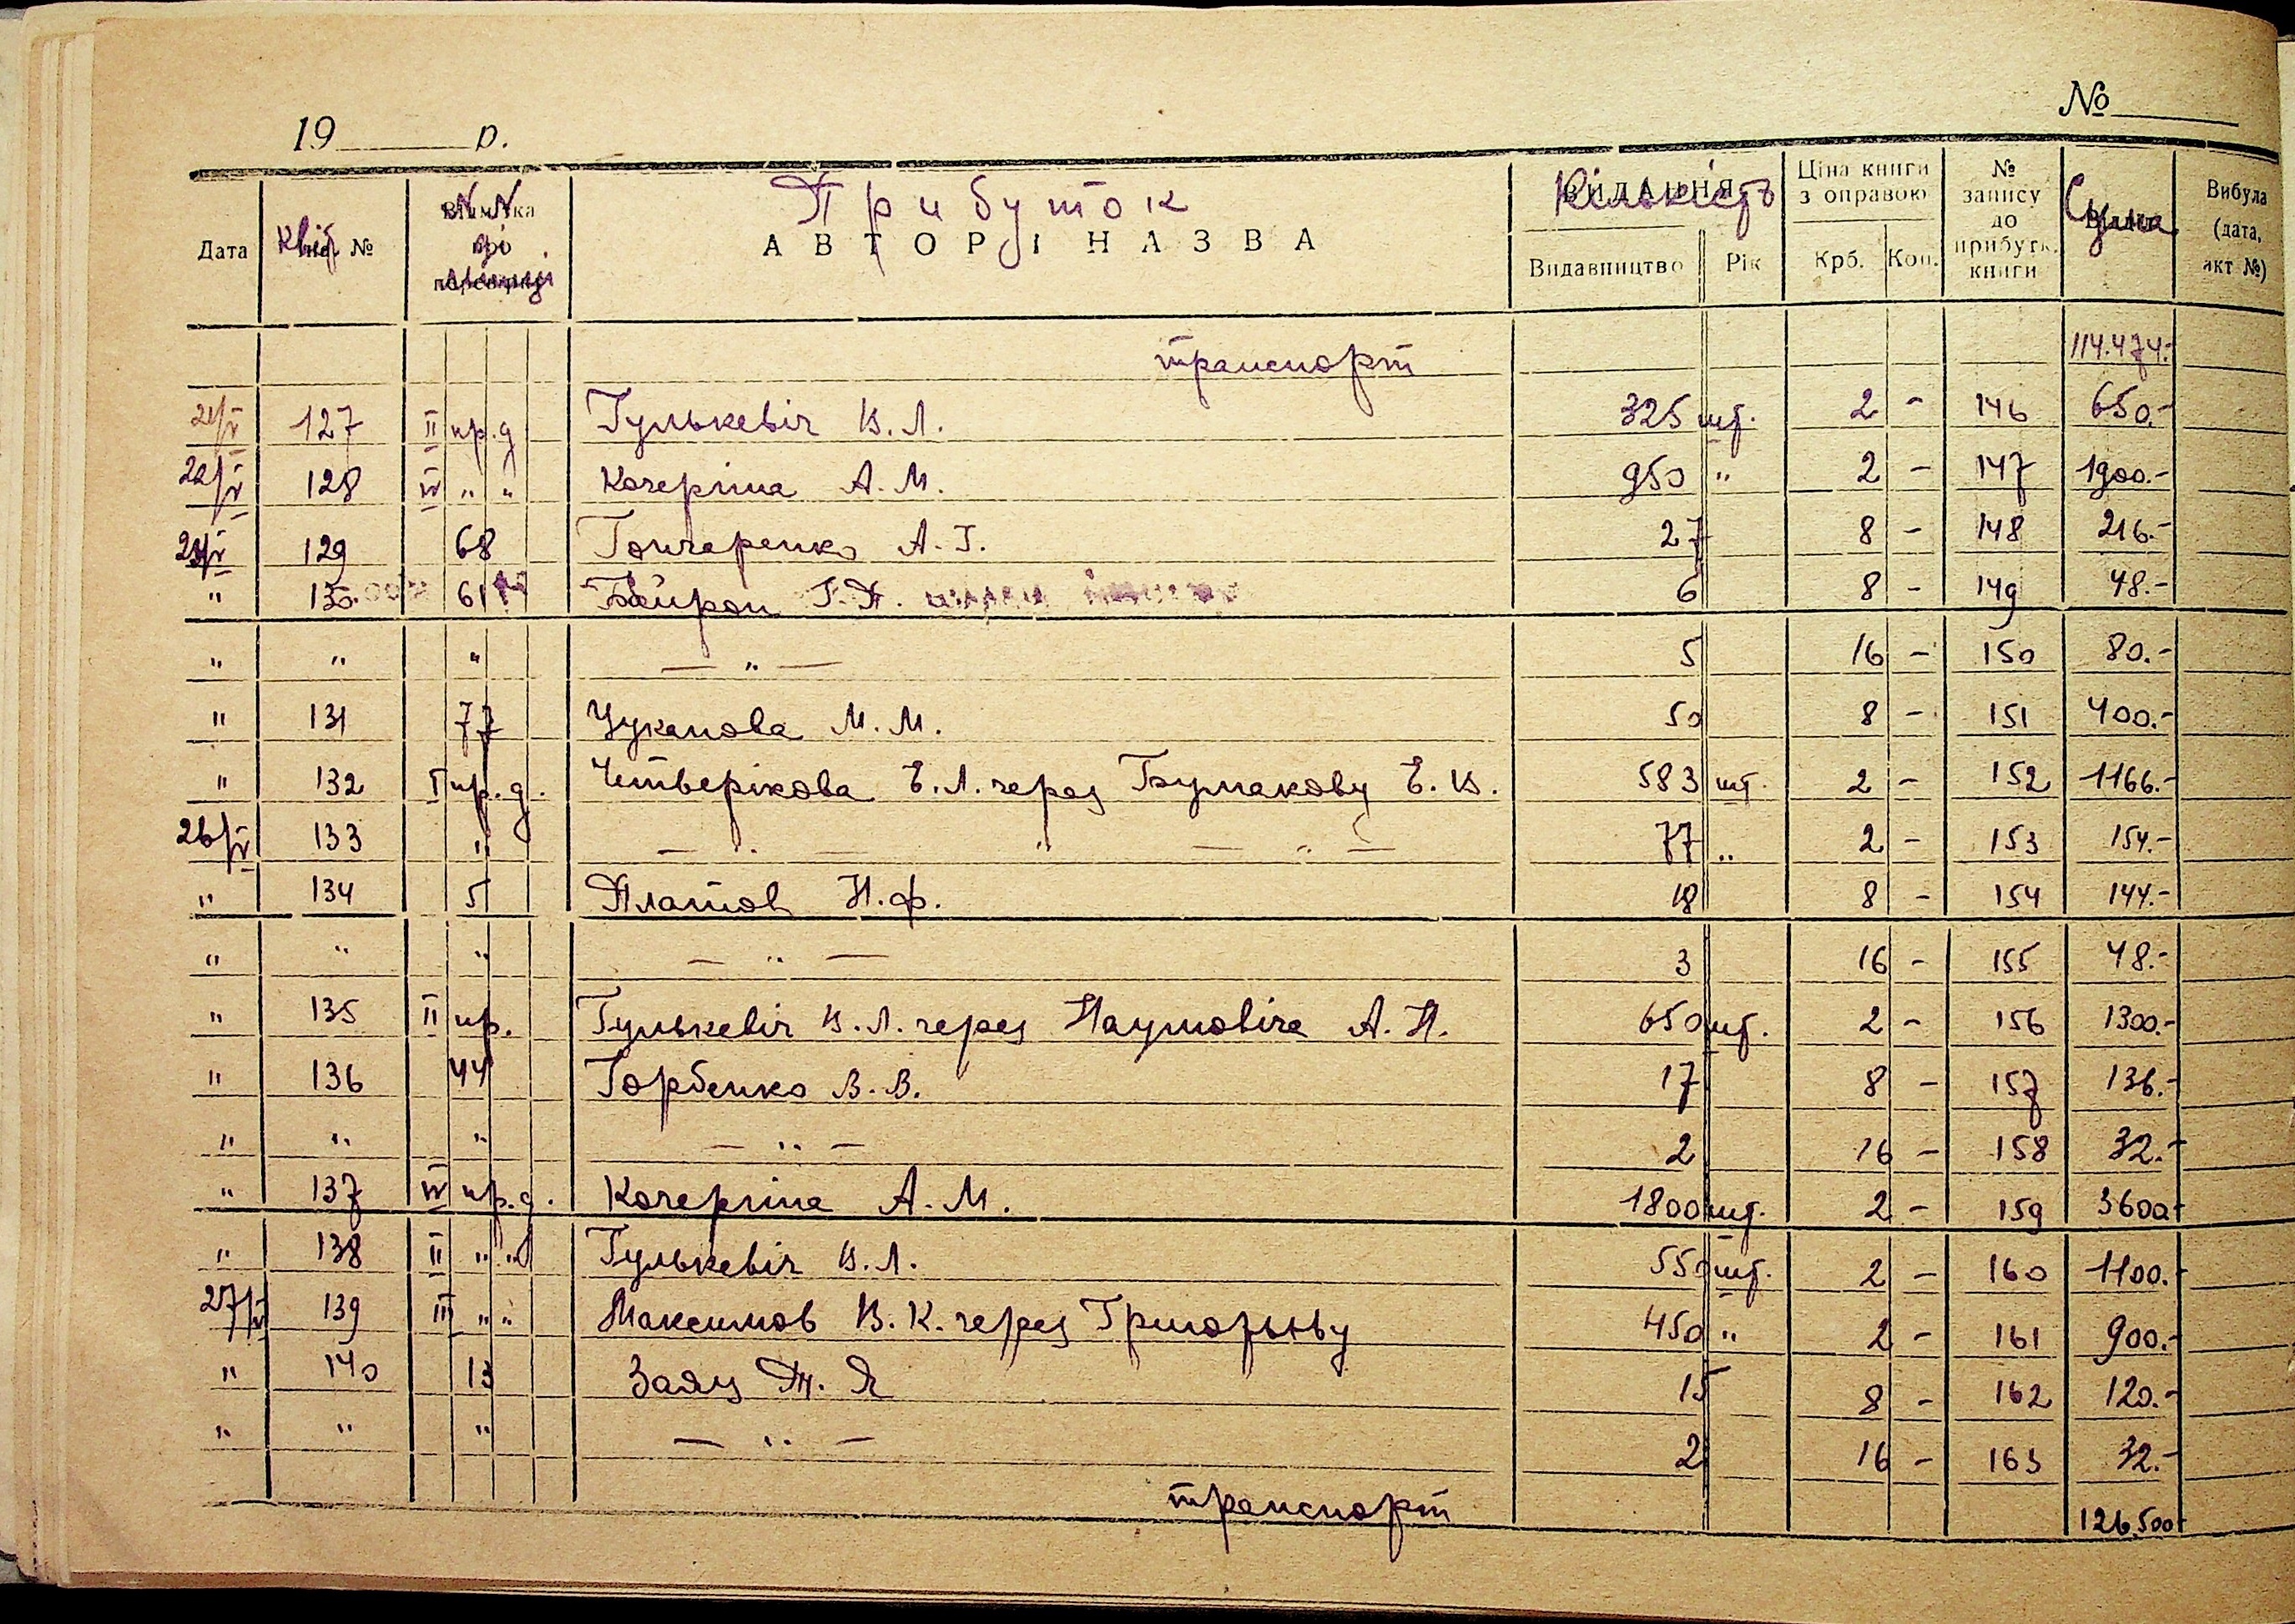 19 р. №
Дата Квіт № N N ді льниці Прибуток Кількість Ціна книги з оправою № запису до прибутк. книги Сума Вибула (дата, акт №)
АВТОР І НАЗВА
Видавництво Рік Крб. Коп.
транспорт 114.474.-
21/V 127 II пр.д Гулькевіч В.Л. 325 шт. 2 - 146 650.-
22/V 128 IV " " Кочеріна А.М. 950 " 2 - 147 1900.-
23/V 129 68 Гончаренко А.Г. 27 8 - 148 216.-
" 130 61 Байрон Г.П. 6 8 - 149 48.-
" " " — " — 5 16 - 150 80.-
" 131 77 Цуканова М.М. 50 8 - 151 400.-
" 132 I пр.д. Четверікова Е.Л. через Бумакову Е.В. 583 шт. 2 - 152 1166.-
26/V 133 " — " — " — " — 77 " 2 - 153 154.-
" 134 5 Платов Н.Ф. 18 8 - 154 144.-
" " " — " — 3 16 - 155 48.-
" 135 II пр. Гулькевіч В.Л. через Наумовіча А.Н. 650 шт. 2 - 156 1300.-
" 136 44 Горбенко В.В. 17 8 - 157 136.-
" " " — " — 2 16 - 158 32.-
" 137 IV пр.д. Кочеріна А.М. 1800 шт. 2 - 159 3600.-
" 138 II " " Гулькевіч В.Л. 550 шт. 2 - 160 1100.-
27/V 139 III " " Максимов В.К. через Григорьеву 450 " 2 - 161 900.-
" 140 13 Заяц П. Я 15 8 - 162 120.-
" " " — " — 2 16 - 163 32.-
транспорт 126.500-